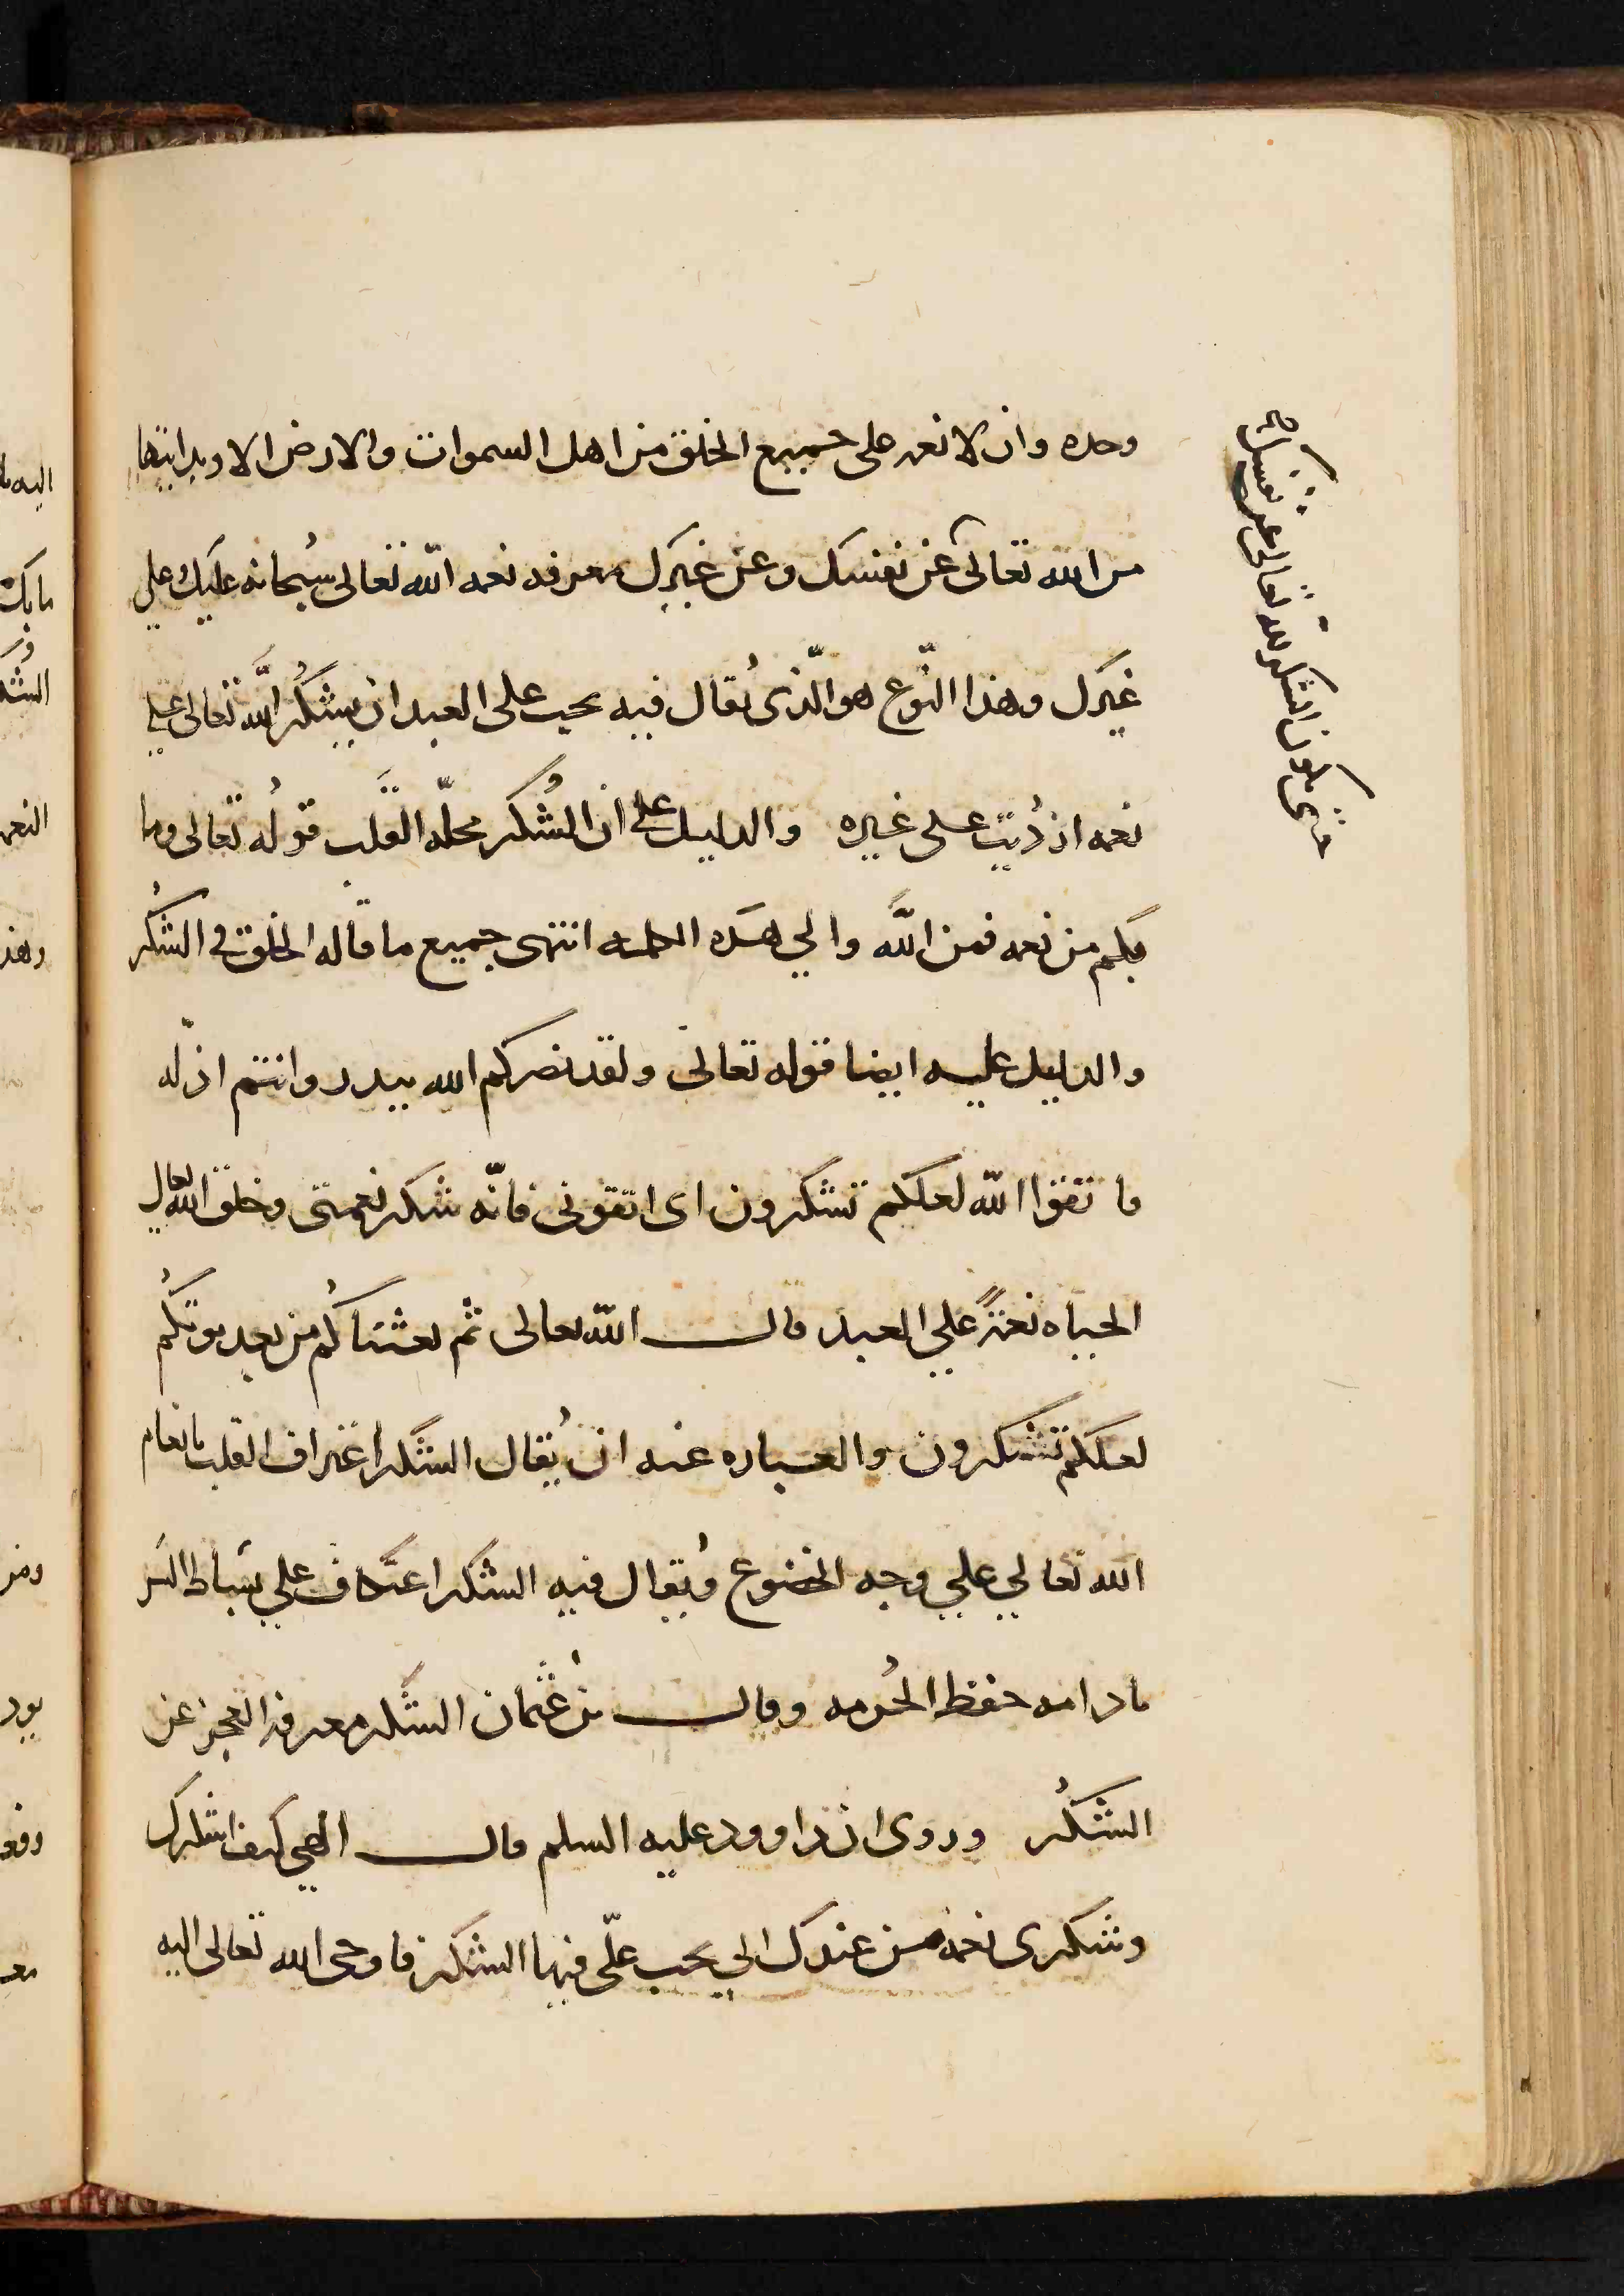 وحده وان لا نعمه على جميع الخلق من اهل السموات والارض الا وبدايتها
من الله تعالى عن نفسك وعن غيرك معرفه نعمه الله تعالى سبحانه عليك على
غيرك وهذا النّوع هو الّذى يُقال فيه يجب على العبد ان يشكُر اللَّه تعالى على
نعمه اذ رُبّت على غيره والدليل على ان الشُكر محلّه القلب قولُه تعالى وما
بكم من نعمه فمن اللَّه والي هَذه الكلمه انتهى جميع ما قاله الخلق في الشكُر
والدليل عليه ايضا قوله تعالى ولقد نصركم الله ببدر وانتم اذلّه
فاتقوا اللّه لعلكم تشكرون اى اتقونى فانّه شكر نعمتى وخلق اللّه تعالى
الحياه نعمةً علي العبد قال اللّه تعالى ثم بعثناكُم من بعد موتكُم
لعلكم تشكرون والعباره عنه ان يُقال الشكر اعتراف القلب بانعام
الله تعالي علي وجه الخضوع ويُقال فيه الشكر اعتكاف علي بساط السر
بادامه حفظ الحُرمه وقال بن عُثمان الشكر معرفه العجز عن
الشكُر وروى ان داوود عليه السلم قال الهي كيف اشكرك
وشكرى نعمه من عندك الي يجب علّى فيها الشكر فاوحى الله تعالى اليه
متى يكون الشكر لله تعالى عن نفسك